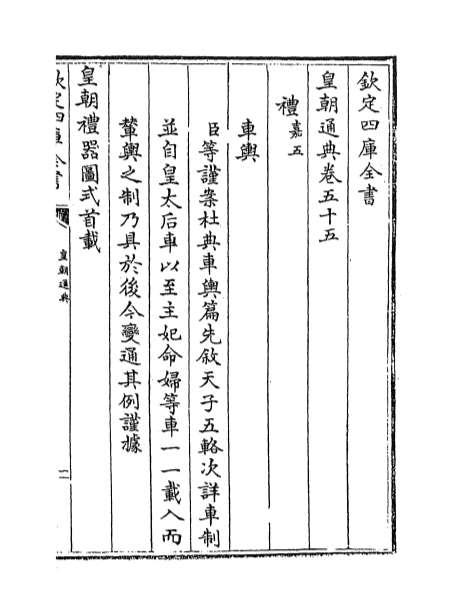 欽定四庫全書
皇朝通典卷五十五
禮嘉五
車輿
臣等謹案杜典車輿篇先敘天子五輅次詳車制
並自皇太后車以至主妃命婦等車一一載入而
輦輿之制乃具於後今變通其例謹據
皇朝禮器圖式首載
欽定四庫全書
皇朝通典
一